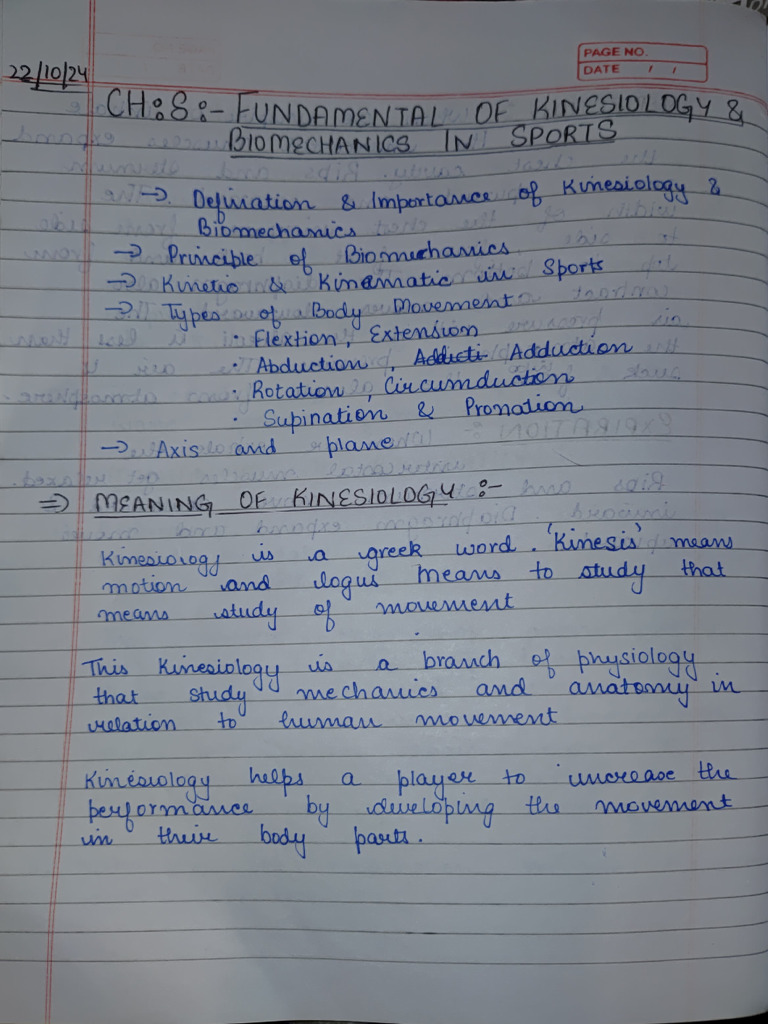 PAGE NO.
DATE / /
22/10/24
CH:8:- FUNDAMENTAL OF KINESIOLOGY &
BIOMECHANICS IN SPORTS
→ Definiation & Importance of Kinesiology &
Biomechanics
→ Principle of Biomechanics
→ Kinetic & Kinematic in Sports
→ Types of Body Movement
• Flextion, Extension
• Abduction, Addicti Adduction
• Rotation, Circumduction
• Supination & Pronation
→ Axis and plane
⇒ MEANING OF KINESIOLOGY :-
Kinesiology is a greek word. 'Kinesis' means
motion and logus means to study that
means study of movement
This Kinesiology is a branch of physiology
that study mechanics and anatomy in
relation to human movement
Kinesiology helps a player to increase the
performance by developing the movement
in their body parts.